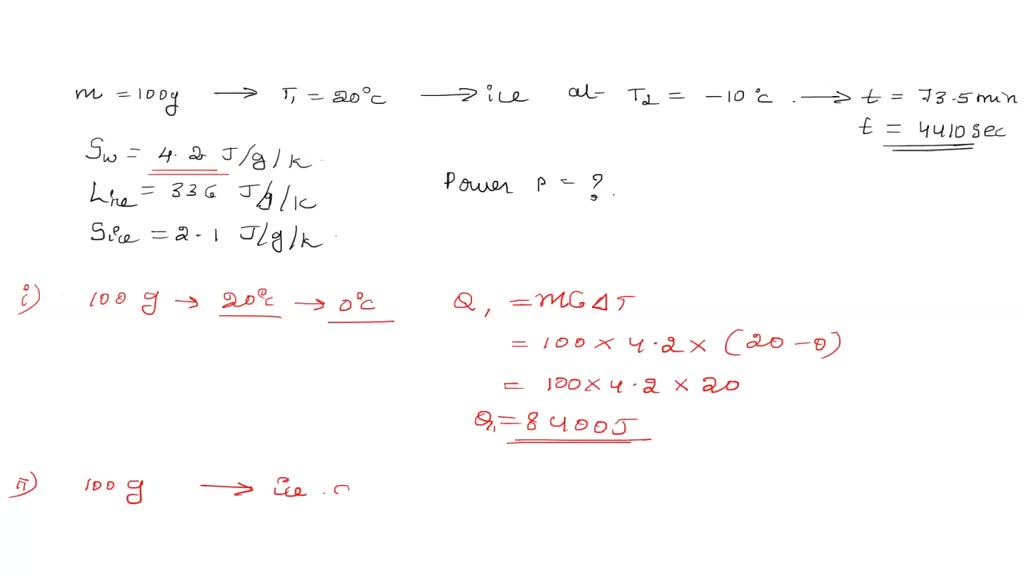 m = 100g → T₁ = 20°c → ice at T2 = -10°c . → t = 73.5min
t = 4410sec
Sw = 4.2 J/g/k
Lice = 336 J/g/K
Power P = ?.
Sice = 2.1 J/g/k
i) 100 g → 20°c → 0°c Q₁ = MCΔT
= 100 × 4.2 × (20-0)
= 100×4.2 × 20
Q₁ = 8400J
ii) 100 g → Ice .